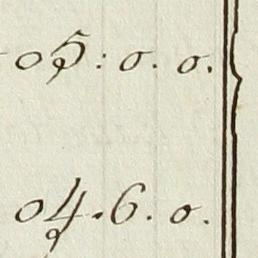 05: 0. 0.
04. 6. 0.